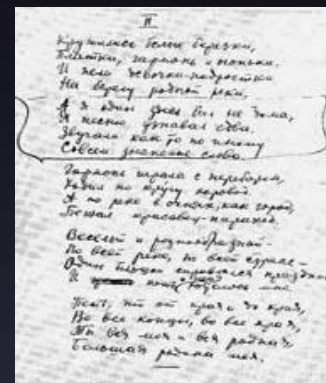 II
Кружились белые березки,
Платки, гармонь и огоньки,
И пели девочки-подростки
На берегу родной реки.
А я один здесь был не дома,
Я песню узнавал едва.
Звучали как-то по иному
Совсем знакомые слова.
Гармонь играла с перебором,
Ходил по кругу хоровод,
А по реке в огнях, как город,
Бежал красавец-пароход.
Веселый и разнообразный
По всей реке, по всей стране
Один большой справлялся праздник,
И петь хотелось мне.
Петь, что от края и до края,
Во все концы, во все края,
Ты вся моя и вся родная,
Большая родина моя.